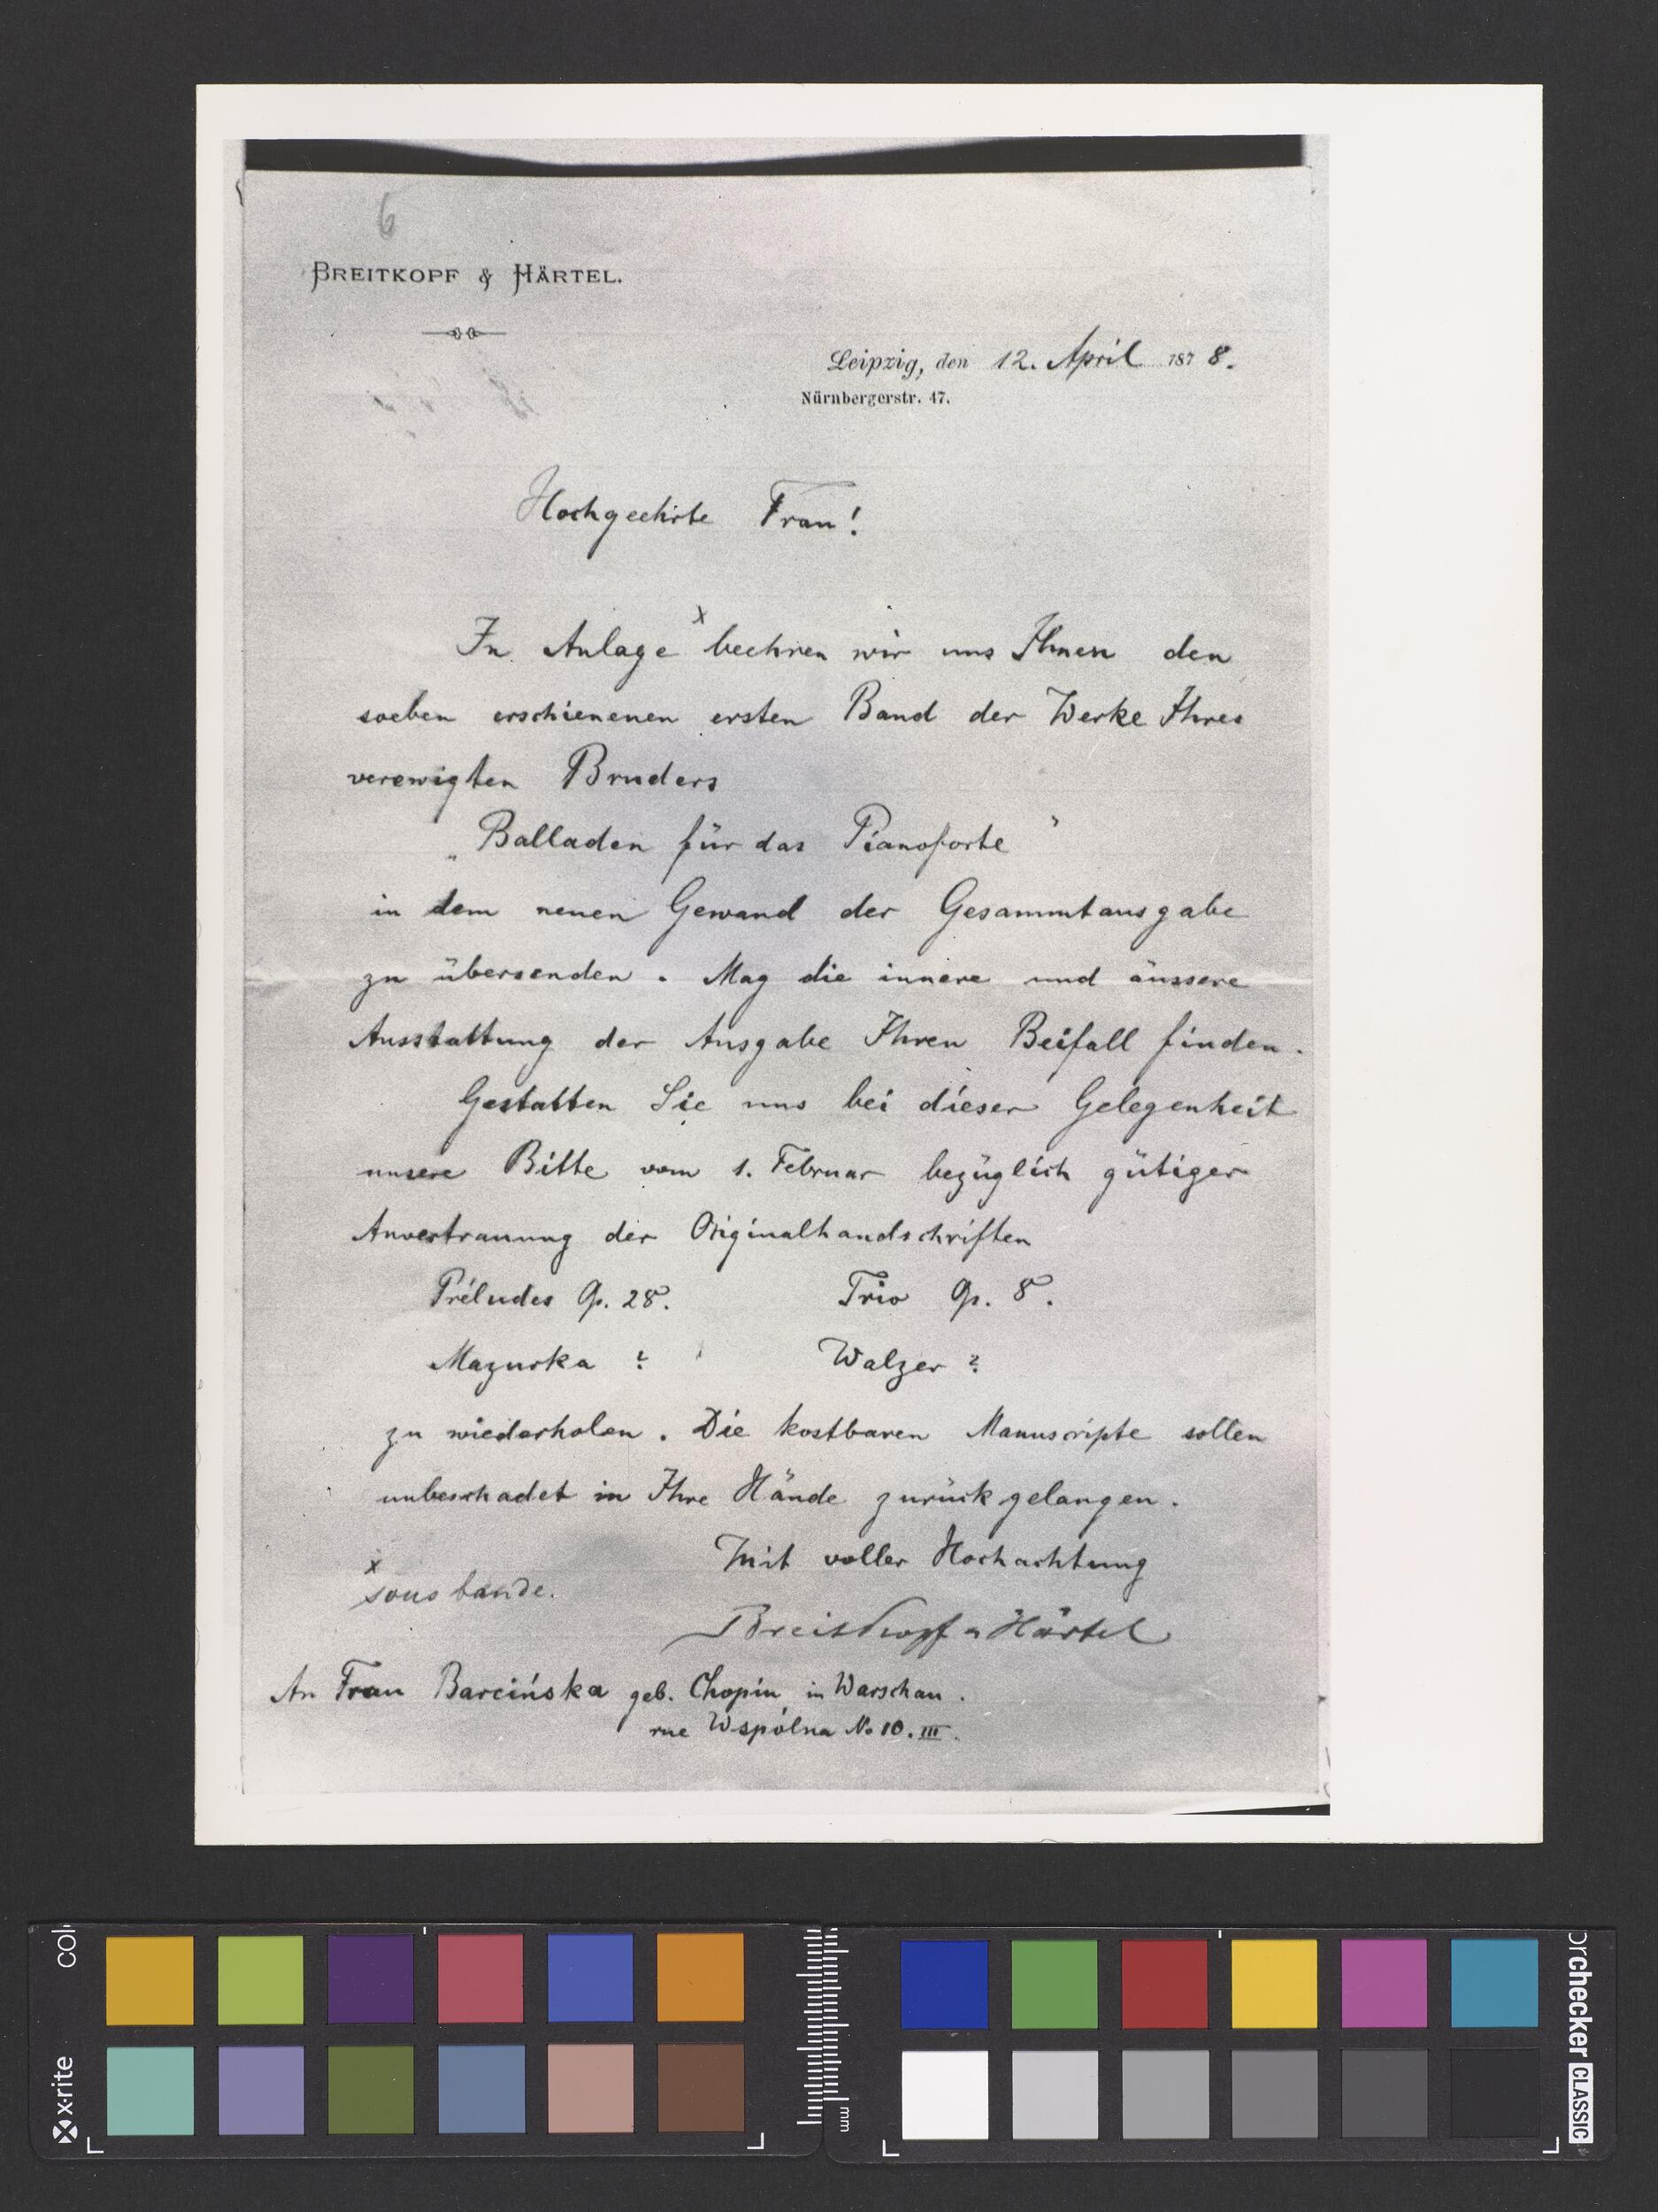 6
BREITKOPF & HÄRTEL.
Leipzig, den 12. April 1878.
Nürnbergerstr. 47.
Hochgeehrte Frau!
In Anlage x beehren wir uns Ihnen den
soeben erschienenen ersten Band der Werke Ihres
verewigten Bruders
„Balladen für das Pianoforte"
in dem neuen Gewand der Gesammtausgabe
zu übersenden. Mag die innere und äussere
Ausstattung der Ausgabe Ihren Beifall finden.
Gestatten Sie uns bei dieser Gelegenheit
unsere Bitte vom 1. Februar bezüglich gütiger
Anvertrauung der Originalhandschriften
Préludes Op. 28. Trio Op. 8.
Mazurka ? Walzer ?
zu wiederholen. Die kostbaren Manuscripte sollen
unbeschadet in Ihre Hände zurückgelangen.
Mit voller Hochachtung
x sous bande.
Breitkopf u Härtel
An Frau Barcińska geb. Chopin in Warschau.
rue Wspólna No 10. III.
col
x-rite
mm
orchecker CLASSIC